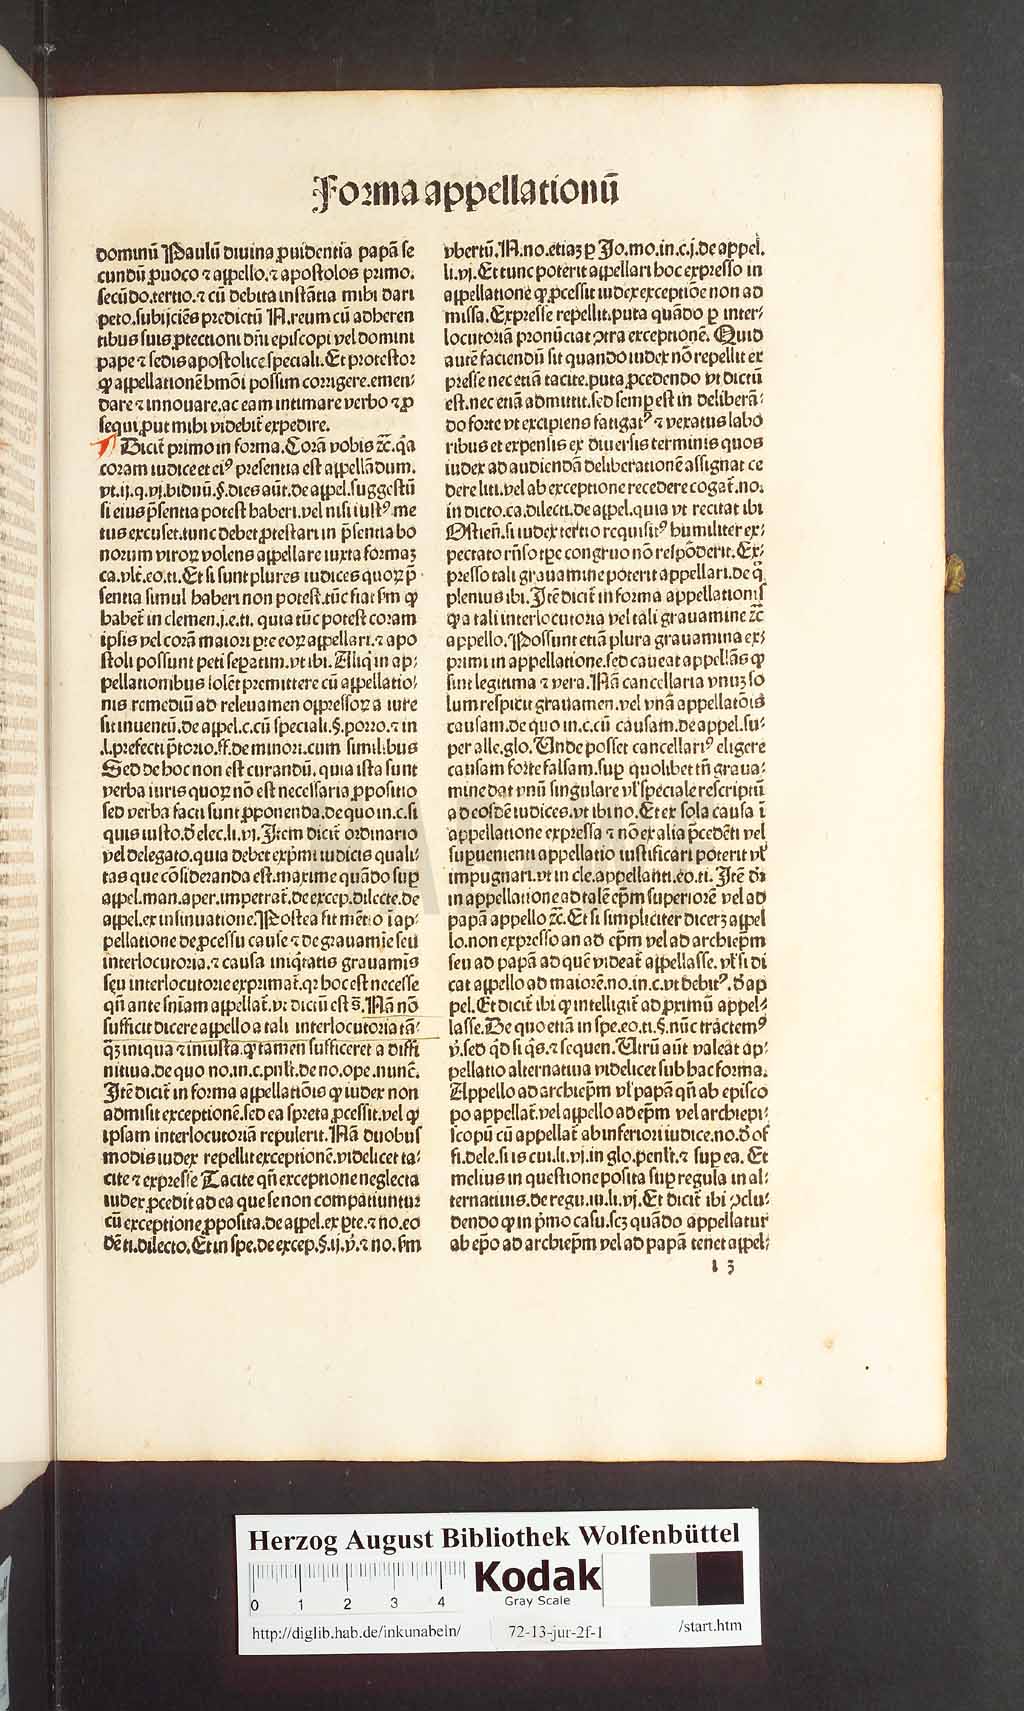 Forma appellationū
dominū Paulū diuina ꝓuidentia papā se
cundū ꝓuoco ⁊ aꝓpello.⁊ apostolos primo.
secūdo.tertio.⁊ cū debita instātia mihi dari
peto.subijciēs predictū N.reum cū adheren
tibus suis ꝓtectioni dn̄i episcopi vel domini
pape ⁊ sedis apostolice speciali.Et protestor
ꝙ appellationē hmōi possim corrigere.emen-
dare ⁊ innouare.ac eam intimare verbo ⁊ ꝓ
sequi ꝓut mihi videbit̄ expedire.
¶ Dicit̄ primo in forma.Corā vobis ⁊c̄.q̄a
coram iudice et eiꝰ presentia est appellādum.
vt.ij.q.vj.biduū.§.dies aūt.de appel.suggestū
si eius p̄sentia potest haberi.vel nisi iustꝰ.me
tus excuset.tunc debet ꝓtestari in p̄sentia bo
norum viroꝝ volens appellare iuxta formaꝫ
ca.vlt̄.eo.ti.Et si sunt plures iudices quoꝝ p̄
sentia simul haberi non potest.tūc fiat s̄m ꝙ
habet̄ in clemen.j.e.ti. quia tūc potest coram
ipsis vel corā maiori ꝑte eoꝝ appellari.⁊ apo
stoli possunt peti seꝑatim.vt ibi. Aliq̄ in ap-
pellationibus solēt premittere cū appellatio-
nis remediū ad releuamen oppressoꝝ a iure
sit inuentū.de appel.c.cū speciali.§.porro.⁊ in
.l.prefecti p̄torio.ff.de minori.cum similibus
Sed de hoc non est curandū.quia ista sunt
verba iuris quoꝝ nō est necessaria ꝓpositio
sed verba facti sunt ꝓponenda.de quo in.c.si
quis iusto.d̄ elec.li.vj.Item dicit̄ ordinario
vel delegato.quia debet exp̄mi iudicis quali-
tas que cōsideranda est.maxime quādo suꝑ
appel.man.aper.impetrat̄.de excep.dilecte.de
appel.ex insinuatione.Postea fit mētio ī ap-
pellatione de ꝓcessu cause ⁊ de grauamīe seu
interlocutoria.⁊ causa iniq̄tatis grauamīs
seu interlocutorie exprimat̄.qꝛ hoc est necesse
qn̄ ante sn̄iam appellat̄.vt dictū est s̄.Nā nō
sufficit dicere appello a tali interlocutoria tā-
q̄ꝫ iniqua ⁊ iniusta.ꝙ tamen sufficeret a diffi
nitiua.de quo no.in.c.pnlt̄.de no.ope.nunc̄.
Itē dicit̄ in forma appellatiōis ꝙ iudex non
admisit exceptionē.sed ea spreta ꝓcessit.vel ꝙ
ipsam interlocutoriā repulerit.Nā duobus
modis iudex repellit exceptionē.videlicet ta-
cite ⁊ expresse Tacite qn̄ exceptione neglecta
iudex ꝓcedit ad ea que se non compatiuntur
cū exceptione ꝓposita.de appel.ex ꝑte.⁊ no.eo
dē ti.dilecto.Et in spe.de excep.§.ij.v̓.⁊ no. s̄m
vbertū.N.no.etiaꝫ ꝑ Jo.mo.in.c.j.de appel.
li.vj.Et tunc poterit appellari hoc expresso in
appellatione ꝙ ꝓcessit iudex exceptiōe non ad
missa.Expresse repellit.puta quādo ꝑ inter-
locutoriā pronūciat ↄtra exceptionē. Quid
autē faciendū sit quando iudex nō repellit ex
presse nec etiā tacite.puta ꝓcedendo vt dictū
est.nec etiā admittit.sed semꝑ est in deliberā-
do forte vt excipiens fatigatꝰ ⁊ vexatus labo
ribus et expensis ex diuersis terminis quos
iudex ad audiendā deliberationē assignat ce
dere liti.vel ab exceptione recedere cogat̄.no.
in dicto.ca.dilecti.de appel.quia vt recitat ibi
Ostien̄.si iudex tertio requisitꝰ humiliter ex-
pectato rn̄so tpe congruo nō respōderit. Ex-
presso tali grauamine poterit appellari.de q̄
plenius ibi. Itē dicit̄ in forma appellationis
ꝙ a tali interlocutoria vel tali grauamine ⁊c̄
appello. Possunt etiā plura grauamina ex-
primi in appellatione.sed caueat appellās ꝙ
sint legitima ⁊ vera. Nā cancellaria vnuꝫ so
lum respicit grauamen.vel vnā appellatōis
causam.de quo in.c.cū causam.de appel.su-
per alle.glo. Unde posset cancellariꝰ eligere
causam forte falsam.suꝑ quolibet tn̄ graua-
mine dat vnū singulare vl̓ speciale rescriptū
ad eosdē iudices.vt ibi no. Et ex sola causa ī
appellatione expressa ⁊ nō ex alia p̄cedēti vel
suꝑuenienti appellatio iustificari poterit vl̓
impugnari.vt in cle.appellanti.eo.ti. Itē dr̄
in appellatione ad talē ep̄m superiorē vel ad
papā appello ⁊c̄.Et si simpliciter diceꝛꝫ appel
lo.non expresso an ad ep̄m vel ad archiep̄m
seu ad papā ad quē videat̄ appellasse. vl̓ si di
cat appello ad maiorē.no.in.c.vt debitꝰ.d̄ ap
pel.Et dicit̄ ibi ꝙ intelligit̄ ad ꝓximū appel-
lasse.De quo etiā in spe.eo.ti.§.nūc tractemꝰ
v̓.sed qd̄ si q̄s.⁊ sequen. Utrū aūt valeat ap-
pellatio alternatiua videlicet sub hac forma.
Appello ad archiep̄m vl̓ papā qn̄ ab episco
po appellat̄.vel appello ad ep̄m vel archiepi-
scopū cū appellat̄ ab inferiori iudice.no.d̄ of
fi.dele.si is cui.li.vj.in glo.penl̓t.⁊ suꝑ ea. Et
melius in questione posita suꝑ regula in al-
ternatiuis.de regu.iu.li.vj.Et dicit̄ ibi ↄclu-
dendo ꝙ in p̄mo casu.scꝫ quādo appellatur
ab ep̄o ad archiep̄m vel ad papā tenet appel-
l 3
HAB
Herzog August Bibliothek Wolfenbüttel
Kodak
Gray Scale
0 1 2 3 4
http://diglib.hab.de/inkunabeln/ 72-13-jur-2f-1 /start.htm